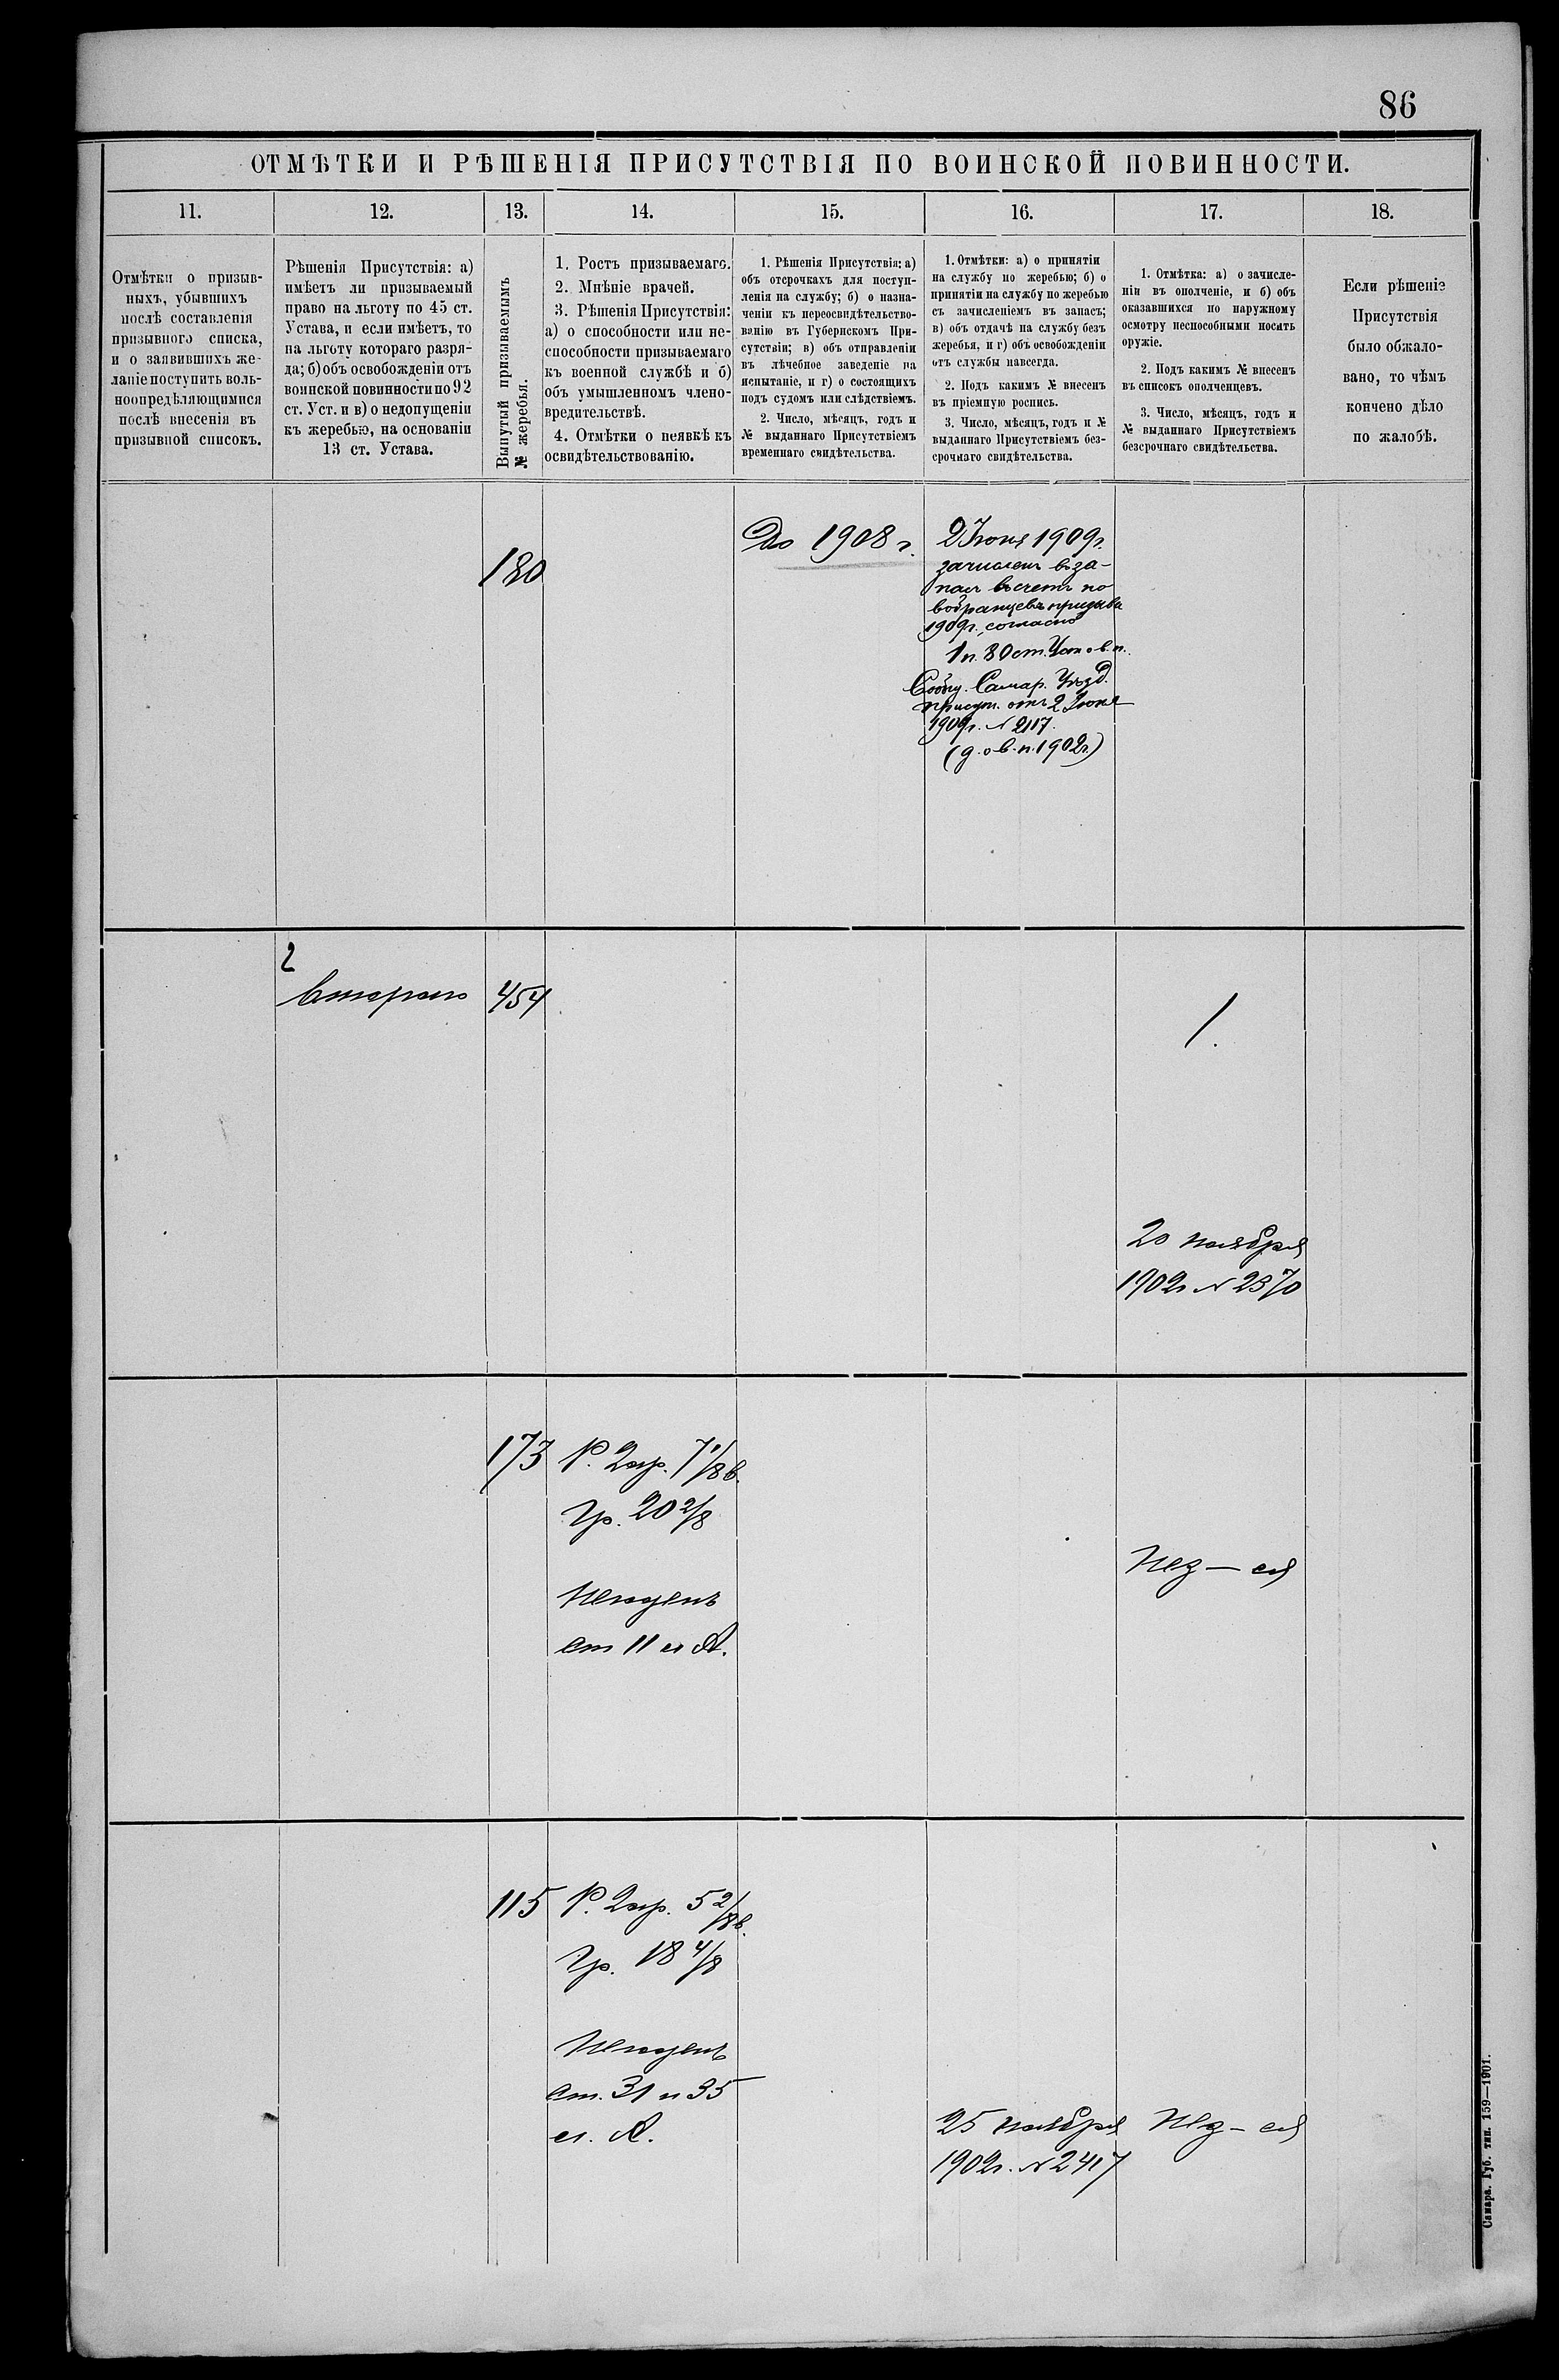 86
ОТМѢТКИ И РѢШЕНІЯ ПРИСУТСТВІЯ ПО ВОИНСКОЙ ПОВИННОСТИ.
11.
12.
13.
14.
15.
16.
17.
18.
Отмѣтки о призыв-
ныхъ, убывшихъ
послѣ составленія
призывного списка,
и о заявившихъ же-
ланіе поступить воль-
ноопредѣляющимися
послѣ внесенія въ
призывной списокъ.
Рѣшенія Присутствія: а)
имѣетъ ли призываемый
право на льготу по 45 ст.
Устава, и если имѣетъ, то
на льготу котораго разря-
да; б) объ освобожденіи отъ
воинской повинности по 92
ст. Уст. и в) о недопущеніи
къ жеребью, на основаніи
13 ст. Устава.
Вынутый призываемымъ
№ жеребья.
1. Ростъ призываемаго.
2. Мнѣніе врачей.
3. Рѣшенія Присутствія:
а) о способности или не-
способности призываемаго
къ военной службѣ и б)
объ умышленномъ члено-
вредительствѣ.
4. Отмѣтки о неявкѣ къ
освидѣтельствованію.
1. Рѣшенія Присутствія: а)
объ отсрочкахъ для поступ-
ленія на службу; б) о назна-
ченіи къ переосвидѣтельство-
ванію въ Губернскомъ При-
сутствіи; в) объ отправленіи
въ лѣчебное заведеніе на
испытаніе, и г) о состоящихъ
подъ судомъ или слѣдствіемъ.
2. Число, мѣсяцъ, годъ и
№ выданнаго Присутствіемъ
временнаго свидѣтельства.
1. Отмѣтки: а) о принятіи
на службу по жеребью; б) о
принятіи на службу по жеребью
съ зачисленіемъ въ запасъ;
в) объ отдачѣ на службу безъ
жеребья, и г) объ освобожденіи
отъ службы навсегда.
2. Подъ какимъ № внесенъ
въ пріемную роспись.
3. Число, мѣсяцъ, годъ и №
выданнаго Присутствіемъ без-
срочнаго свидѣтельства.
1. Отмѣтка: а) о зачисле-
ніи въ ополченіе, и б) объ
оказавшихся по наружному
осмотру неспособными носить
оружіе.
2. Подъ какимъ № внесенъ
въ списокъ ополченцевъ.
3. Число, мѣсяцъ, годъ и
№ выданнаго Присутствіемъ
безсрочнаго свидѣтельства.
Если рѣшеніе
Присутствія
было обжало-
вано, то чѣмъ
кончено дѣло
по жалобѣ.
180
До 1908 г.
2 Іюня 1909 г.
зачисленъ въ за-
пасъ въ счетъ но
вобранцевъ призыва
1909 г., согласно
1 п. 80 ст. Уст. о в. п.
Сообщ. Самар. Уѣзд.
присут. отъ 2 Іюня
1909 г. № 2117.
(д. о в. п. 1902 г.)
2
втораго
454
1.
20 ноября
1902 г № 2370
173
Р. 2 ар. 7 1/8 в.
Гр. 20 2/8
Негоденъ
ст 11 л А.
Нез — ся
115
Р. 2 ар. 5 2/8 в.
Гр. 18 4/8
Негоденъ
ст. 31 и 35
л. А.
25 ноября
1902 г. № 2417
Нез — ся
Самара. Губ. тип. 159—1901.